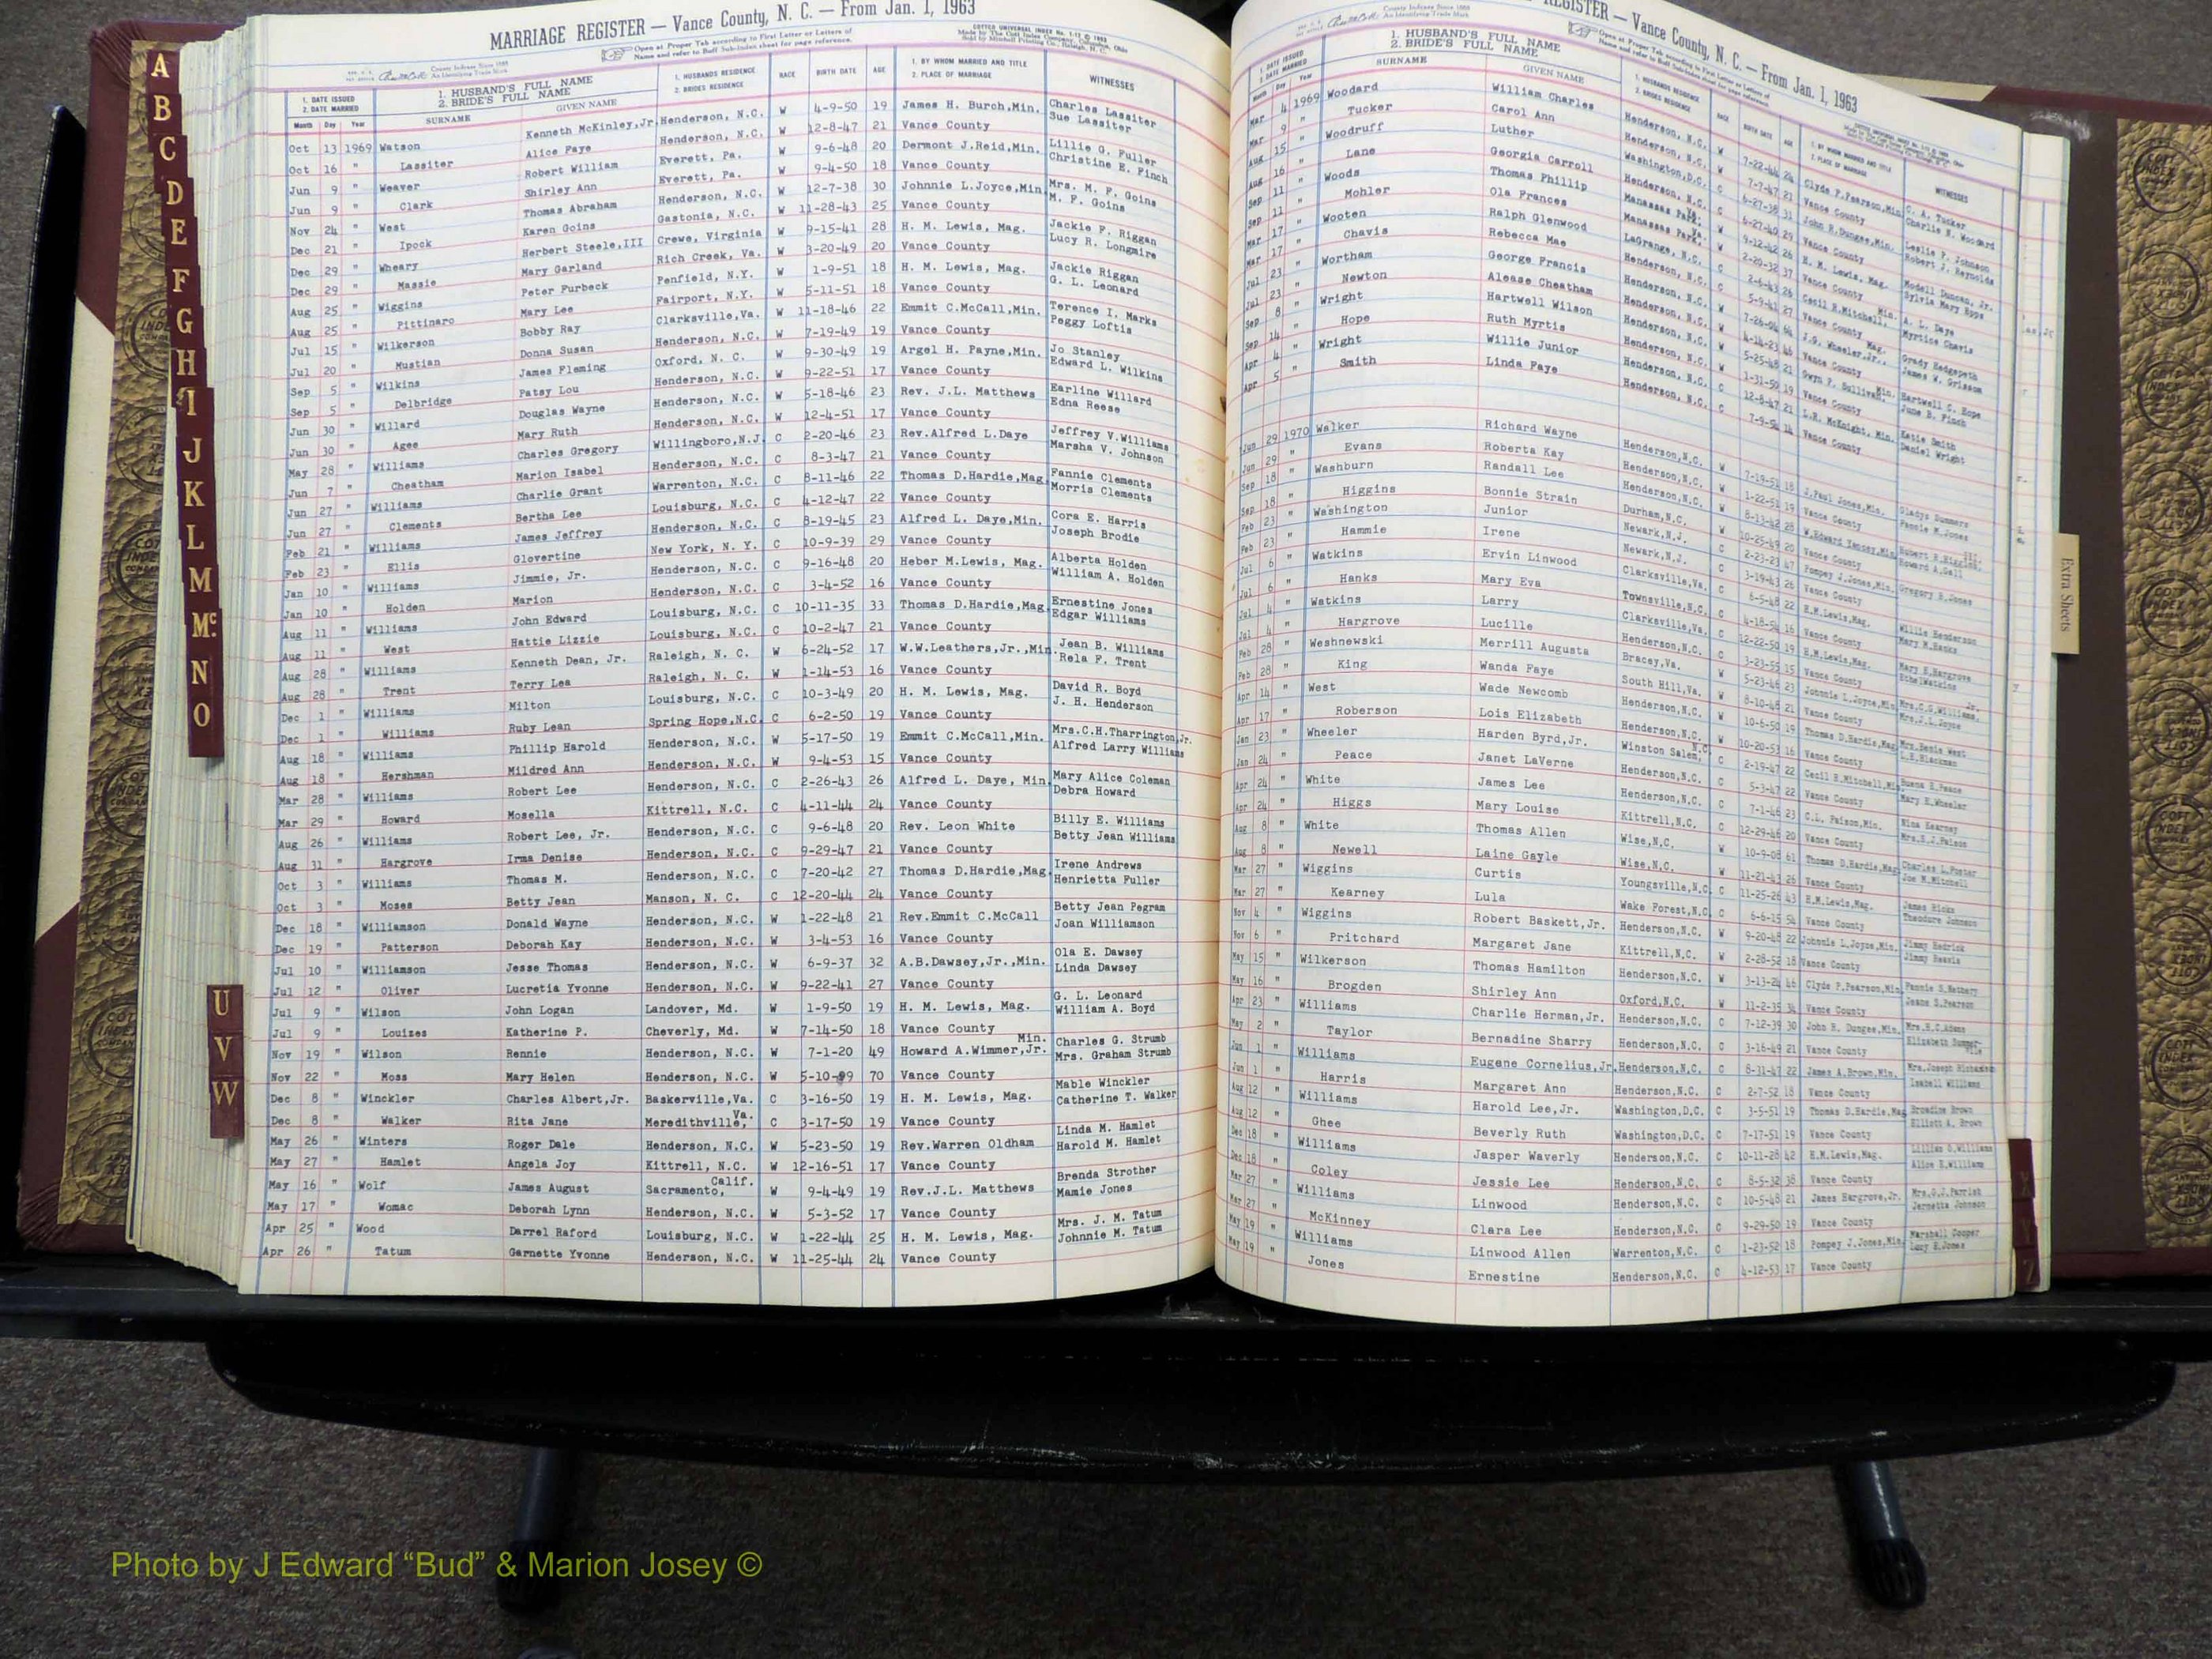 MARRIAGE REGISTER — Vance County, N. C. — From Jan. 1, 1963
Open at Proper Tab according to First Letter or Letters of
Name and refer to Buff Sub-Index sheet for page reference.
COTTED UNIVERSAL INDEX No. 1-12 © 1963
1. DATE ISSUED
2. DATE MARRIED
1. HUSBAND'S FULL NAME
2. BRIDE'S FULL NAME
SURNAME GIVEN NAME
1. HUSBANDS RESIDENCE
2. BRIDES RESIDENCE
RACE BIRTH DATE AGE
1. BY WHOM MARRIED AND TITLE
2. PLACE OF MARRIAGE
WITNESSES
Month Day Year
Oct 13 1969 Watson Kenneth McKinley,Jr. Henderson, N.C. W 4-9-50 19 James H. Burch,Min. Charles Lassiter
Oct 16 " Lassiter Alice Faye Henderson, N.C. W 12-8-47 21 Vance County Sue Lassiter
Jun 9 " Weaver Robert William Everett, Pa. W 9-6-48 20 Dermont J.Reid,Min. Lillie G. Fuller
Jun 9 " Clark Shirley Ann Everett, Pa. W 9-4-50 18 Vance County Christine E. Finch
Nov 24 " West Thomas Abraham Henderson, N.C. W 12-7-38 30 Johnnie L.Joyce,Min. Mrs. M. F. Goins
Dec 21 " Ipock Karen Goins Gastonia, N.C. W 11-28-43 25 Vance County M. F. Goins
Dec 29 " Wheary Herbert Steele,III Crewe, Virginia W 9-15-41 28 H. M. Lewis, Mag. Jackie F. Riggan
Dec 29 " Massie Mary Garland Rich Creek, Va. W 3-20-49 20 Vance County Lucy R. Longmire
Aug 25 " Wiggins Peter Furbeck Penfield, N.Y. W 1-9-51 18 H. M. Lewis, Mag. Jackie Riggan
Aug 25 " Pittinaro Mary Lee Fairport, N.Y. W 5-11-51 18 Vance County G. L. Leonard
Jul 15 " Wilkerson Bobby Ray Clarksville,Va. W 11-18-46 22 Emmit C.McCall,Min. Terence I. Marks
Jul 20 " Mustian Donna Susan Henderson, N.C. W 7-19-49 19 Vance County Peggy Loftis
Sep 5 " Wilkins James Fleming Oxford, N. C. W 9-30-49 19 Argel H. Payne,Min. Jo Stanley
Sep 5 " Delbridge Patsy Lou Henderson, N.C. W 9-22-51 17 Vance County Edward L. Wilkins
Jun 30 " Willard Douglas Wayne Henderson, N.C. W 5-18-46 23 Rev. J.L. Matthews Earline Willard
Jun 30 " Agee Mary Ruth Henderson, N.C. W 12-4-51 17 Vance County Edna Reese
May 28 " Williams Charles Gregory Willingboro,N.J. C 2-20-46 23 Rev.Alfred L.Daye Jeffrey V.Williams
Jun 7 " Cheatham Marion Isabel Henderson, N.C. C 8-3-47 21 Vance County Marsha V. Johnson
Jun 27 " Williams Charlie Grant Warrenton, N.C. C 8-11-46 22 Thomas D.Hardie,Mag. Fannie Clements
Jun 27 " Clements Bertha Lee Louisburg, N.C. C 4-12-47 22 Vance County Morris Clements
Feb 21 " Williams James Jeffrey Henderson, N.C. C 8-19-45 23 Alfred L. Daye,Min. Cora E. Harris
Feb 23 " Ellis Glovertine New York, N. Y. C 10-9-39 29 Vance County Joseph Brodie
Jan 10 " Williams Jimmie, Jr. Henderson, N.C. C 9-16-48 20 Heber M.Lewis, Mag. Alberta Holden
Jan 10 " Holden Marion Henderson, N.C. C 3-4-52 16 Vance County William A. Holden
Aug 11 " Williams John Edward Louisburg, N.C. C 10-11-35 33 Thomas D.Hardie,Mag. Ernestine Jones
Aug 11 " West Hattie Lizzie Louisburg, N.C. C 10-2-47 21 Vance County Edgar Williams
Aug 28 " Williams Kenneth Dean, Jr. Raleigh, N. C. W 6-24-52 17 W.W.Leathers,Jr.,Min. Jean B. Williams
Aug 28 " Trent Terry Lea Raleigh, N. C. W 1-14-53 16 Vance County Rela F. Trent
Dec 1 " Williams Milton Louisburg, N.C. C 10-3-49 20 H. M. Lewis, Mag. David R. Boyd
Dec 1 " Williams Ruby Lean Spring Hope,N.C. C 6-2-50 19 Vance County J. H. Henderson
Aug 18 " Williams Phillip Harold Henderson, N.C. W 5-17-50 19 Emmit C.McCall,Min. Mrs.C.H.Tharrington,Jr.
Aug 18 " Hershman Mildred Ann Henderson, N.C. W 9-4-53 15 Vance County Alfred Larry Williams
Mar 28 " Williams Robert Lee Henderson, N.C. C 2-26-43 26 Alfred L. Daye, Min. Mary Alice Coleman
Mar 29 " Howard Mosella Kittrell, N.C. C 4-11-44 24 Vance County Debra Howard
Aug 26 " Williams Robert Lee, Jr. Henderson, N.C. C 9-6-48 20 Rev. Leon White Billy E. Williams
Aug 31 " Hargrove Irma Denise Henderson, N.C. C 9-29-47 21 Vance County Betty Jean Williams
Oct 3 " Williams Thomas M. Henderson, N.C. C 7-20-42 27 Thomas D.Hardie,Mag. Irene Andrews
Oct 3 " Moses Betty Jean Manson, N. C. C 12-20-44 24 Vance County Henrietta Fuller
Dec 18 " Williamson Donald Wayne Henderson, N.C. W 1-22-48 21 Rev.Emmit C.McCall Betty Jean Pegram
Dec 19 " Patterson Deborah Kay Henderson, N.C. W 3-4-53 16 Vance County Joan Williamson
Jul 10 " Williamson Jesse Thomas Henderson, N.C. W 6-9-37 32 A.B.Dawsey,Jr.,Min. Ola E. Dawsey
Jul 12 " Oliver Lucretia Yvonne Henderson, N.C. W 9-22-41 27 Vance County Linda Dawsey
Jul 9 " Wilson John Logan Landover, Md. W 1-9-50 19 H. M. Lewis, Mag. G. L. Leonard
Jul 9 " Louizes Katherine P. Cheverly, Md. W 7-14-50 18 Vance County William A. Boyd
Nov 19 " Wilson Rennie Henderson, N.C. W 7-1-20 49 Howard A.Wimmer,Jr. Min. Charles G. Strumb
Nov 22 " Moss Mary Helen Henderson, N.C. W 5-10-99 70 Vance County Mrs. Graham Strumb
Dec 8 " Winckler Charles Albert,Jr. Baskerville,Va. C 3-16-50 19 H. M. Lewis, Mag. Mable Winckler
Dec 8 " Walker Rita Jane Meredithville, Va. C 3-17-50 19 Vance County Catherine T. Walker
May 26 " Winters Roger Dale Henderson, N.C. W 5-23-50 19 Rev.Warren Oldham Linda M. Hamlet
May 27 " Hamlet Angela Joy Kittrell, N.C. W 12-16-51 17 Vance County Harold M. Hamlet
May 16 " Wolf James August Sacramento, Calif. W 9-4-49 19 Rev.J.L. Matthews Brenda Strother
May 17 " Womac Deborah Lynn Henderson, N.C. W 5-3-52 17 Vance County Mamie Jones
Apr 25 " Wood Darrel Raford Louisburg, N.C. W 1-22-44 25 H. M. Lewis, Mag. Mrs. J. M. Tatum
Apr 26 " Tatum Garnette Yvonne Henderson, N.C. W 11-25-44 24 Vance County Johnnie M. Tatum
REGISTER — Vance County, N. C. — From Jan. 1, 1963
1. HUSBAND'S FULL NAME
2. BRIDE'S FULL NAME
SURNAME GIVEN NAME
Mar 4 1969 Woodard William Charles Henderson, N.C. W 7-22-44 24 Clyde P.Pearson,Min. C. A. Tucker
Mar 9 " Tucker Carol Ann Henderson, N.C. W 7-7-47 21 Vance County Charlie N. Woodard
Aug 15 " Woodruff Luther Washington,D.C. C 6-27-38 31 John R.Dungee,Min. Leslie P. Johnson
Aug 16 " Lane Georgia Carroll Henderson, N.C. C 6-27-40 29 Vance County Robert J. Reynolds
Sep 11 " Woods Thomas Phillip Manassas Park, Va. W 9-12-42 26 H. M. Lewis, Mag. Modell Duncan, Jr.
Sep 11 " Mohler Ola Frances Manassas Park, Va. W 2-29-32 37 Vance County Sylvia Mary Epps
Mar 17 " Wooten Ralph Glenwood LaGrange, N.C. C 2-6-43 26 Cecil R.Mitchell, Min. A. L. Daye
Mar 17 " Chavis Rebecca Mae Henderson, N.C. C 5-9-41 27 Vance County Myrtice Chavis
Jul 23 " Wortham George Francis Henderson, N.C. W J.G. Wheeler,Jr., Mag. Grady Hedgepeth
Jul 23 " Newton Alease Cheatham Henderson, N.C. W 4-14-23 46 Vance County James W. Grissom
Sep 8 " Wright Hartwell Wilson Henderson, N.C. W 5-25-48 21 Gwyn P. Sullivan, Min. Hartwell C. Hope
Sep 14 " Hope Ruth Myrtis Henderson, N.C. W 1-31-50 19 Vance County June B. Finch
Apr 4 " Wright Willie Junior Henderson, N.C. C 12-8-47 21 L.R. McKnight, Min. Katie Smith
Apr 5 " Smith Linda Faye Henderson, N.C. C Vance County Daniel Wright
Jun 29 1970 Walker Richard Wayne Henderson,N.C. W 7-19-51 18 J.Paul Jones,Min. Gladys Summers
Jun 29 " Evans Roberta Kay Henderson,N.C. W 1-22-51 19 Vance County Fannie M.Jones
Sep 18 " Washburn Randall Lee Henderson,N.C. W 8-13-42 28 W.Edward Yancey,Min.
Sep 18 " Higgins Bonnie Strain Durham,N.C. W 10-25-49 20 Vance County
Feb 23 " Washington Junior Newark,N.J. C 2-23-23 47 Pompey J.Jones,Min. Gregory R.Jones
Feb 23 " Hammie Irene Newark,N.J. C 3-19-43 26 Vance County
Jul 6 " Watkins Ervin Linwood Clarksville,Va. C 6-5-48 22 H.M.Lewis,Mag. Willie Henderson
Jul 6 " Hanks Mary Eva Townsville,N.C. C 4-18-54 16 Vance County Mary M.Hanks
Jul 4 " Watkins Larry Clarksville,Va. C 12-22-50 19 H.M.Lewis,Mag. Mary E.Hargrove
Jul 4 " Hargrove Lucille Henderson,N.C. C 3-23-55 15 Vance County Ethel Watkins
Feb 28 " Weshnewski Merrill Augusta Bracey,Va. W 5-23-46 23 Johnnie L.Joyce,Min. Mrs.C.G.Williams, Jr.
Feb 28 " King Wanda Faye South Hill,Va. W 8-10-48 21 Vance County Mrs.J.L.Joyce
Apr 14 " West Wade Newcomb Henderson,N.C. W 10-6-50 19 Thomas D.Hardie,Mag. Mrs.Benie West
Apr 17 " Roberson Lois Elizabeth Henderson,N.C. W 10-20-53 16 Vance County L.E.Blackman
Jan 23 " Wheeler Harden Byrd,Jr. Winston Salem, N.C. C 2-19-47 22 Cecil R.Mitchell,Min. Buena R.Peace
Jan 24 " Peace Janet LaVerne Henderson,N.C. C 5-3-47 22 Vance County Mary E.Wheeler
Apr 24 " White James Lee Henderson,N.C. C 7-1-46 23 C.L. Faison,Min. Nina Kearney
Apr 24 " Higgs Mary Louise Kittrell,N.C. C 12-29-49 20 Vance County Mrs.S.J.Faison
Aug 8 " White Thomas Allen Wise,N.C. W 10-9-08 61 Thomas D.Hardie,Mag. Charles L.Foster
Aug 8 " Newell Laine Gayle Wise,N.C. W 11-21-43 26 Vance County Joe M.Mitchell
Mar 27 " Wiggins Curtis Youngsville,N.C. C 11-25-26 43 H.M.Lewis,Mag. James Hicks
Mar 27 " Kearney Lula Wake Forest,N.C. C 6-6-15 54 Vance County Theodore Johnson
Nov 4 " Wiggins Robert Baskett,Jr. Henderson,N.C. W 9-20-48 22 Johnnie L.Joyce,Min. Jimmy Hedrick
Nov 6 " Pritchard Margaret Jane Kittrell,N.C. W 2-28-52 18 Vance County Jimmy Reavis
May 15 " Wilkerson Thomas Hamilton Henderson,N.C. W 3-13-24 46 Clyde P.Pearson,Min.
May 16 " Brogden Shirley Ann Oxford,N.C. W 11-2-35 34 Vance County Jeane S.Pearson
Apr 23 " Williams Charlie Herman,Jr. Henderson,N.C. C 7-12-39 30 John R. Dungee,Min. Mrs.H.C.Adams
May 2 " Taylor Bernadine Sharry Henderson,N.C. C 3-16-49 21 Vance County
Jun 1 " Williams Eugene Cornelius,Jr. Henderson,N.C. C 8-31-47 22 James A.Brown,Min.
Jun 1 " Harris Margaret Ann Henderson,N.C. C 2-7-52 18 Vance County Isabell Williams
Aug 12 " Williams Harold Lee,Jr. Washington,D.C. C 3-5-51 19 Thomas D.Hardie,Mag.
Aug 12 " Ghee Beverly Ruth Washington,D.C. C 7-17-51 19 Vance County Elliott A. Brown
Dec 18 " Williams Jasper Waverly Henderson,N.C. C 10-11-28 42 H.M.Lewis,Mag. Lillian O.Williams
Dec 18 " Coley Jessie Lee Henderson,N.C. C 8-5-32 38 Vance County Alice E.Williams
Mar 27 " Williams Linwood Henderson,N.C. C 10-5-48 21 James Hargrove,Jr. Mrs.G.J.Parrish
Mar 27 " McKinney Clara Lee Henderson,N.C. C 9-29-50 19 Vance County Jarnetta Johnson
May 19 " Williams Linwood Allen Warrenton,N.C. C 1-23-52 18 Pompey J.Jones,Min. Marshall Cooper
May 19 " Jones Ernestine Henderson,N.C. C 4-12-53 17 Vance County Lucy H.Jones
A
B
C
D
E
F
G
H
I
J
K
L
M
Mc
N
O
U
V
W
Extra Sheets
Photo by J Edward “Bud” & Marion Josey ©